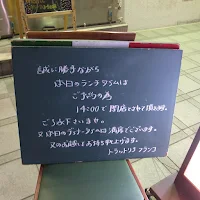 誠に勝手ながら
本日のランチタイムは
ご予約の為
14:00で閉店とさせて頂きます。
ご了承下さいませ。
又本日のディナータイムは満席でございます。
又のお越しをお待ち申し上げます。
トラットリア フランコ